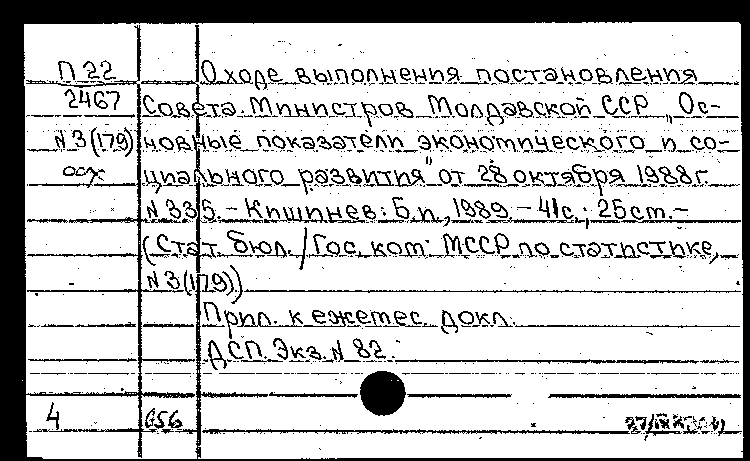 П 22 О ходе выполнения постановления
2467 Совета Министров Молдавской ССР „Ос-
N 3 (179) новные показатели экономического и со-
оох циального развития" от 28 октября 1988г.
N 335. - Кишинев: Б.и., 1989. - 41с.; 25cm. -
(Стат. бюл. / Гос. ком. МССР по статистике,
N 3 (179))
Прил. к ежемес. докл.
ДСП. Экз. N 82.
4 656